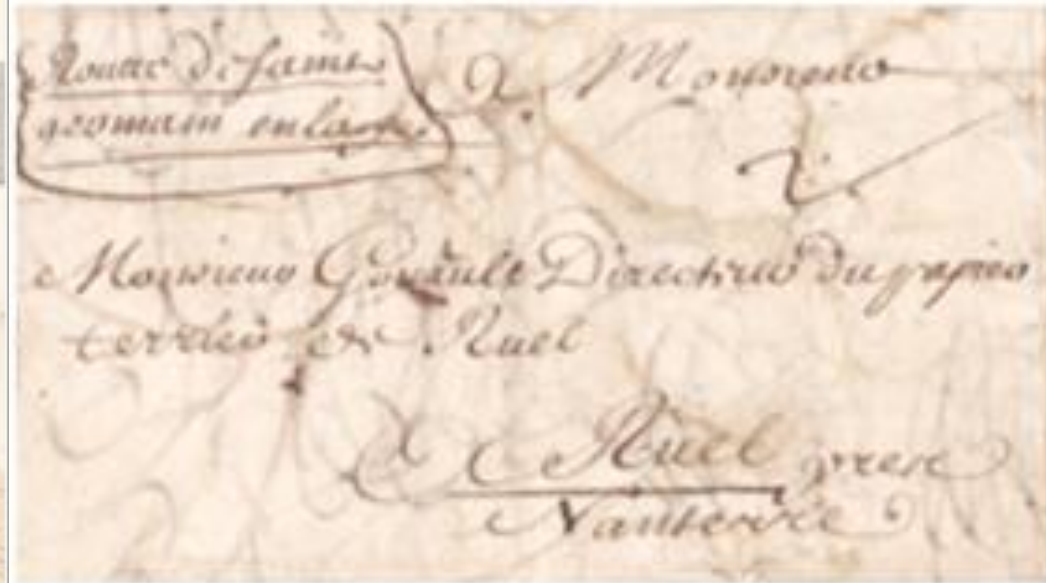 Routte de saint
germain enlaye
A Monsieur
Monsieur Girault Directeur du papier
terrier de Ruel
A Ruel prese
Nanterre